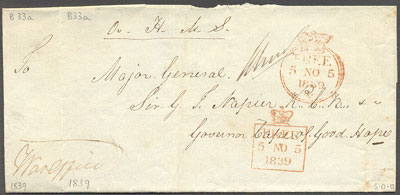 B33a B33a
On H. M. S.
To
FREE
5 NO 5
1839
Major General
Sir G. T. Napier K.C.B. &
Governor Cape of Good Hope
FREE
5 NO 5
1839
War Office
1839 1839